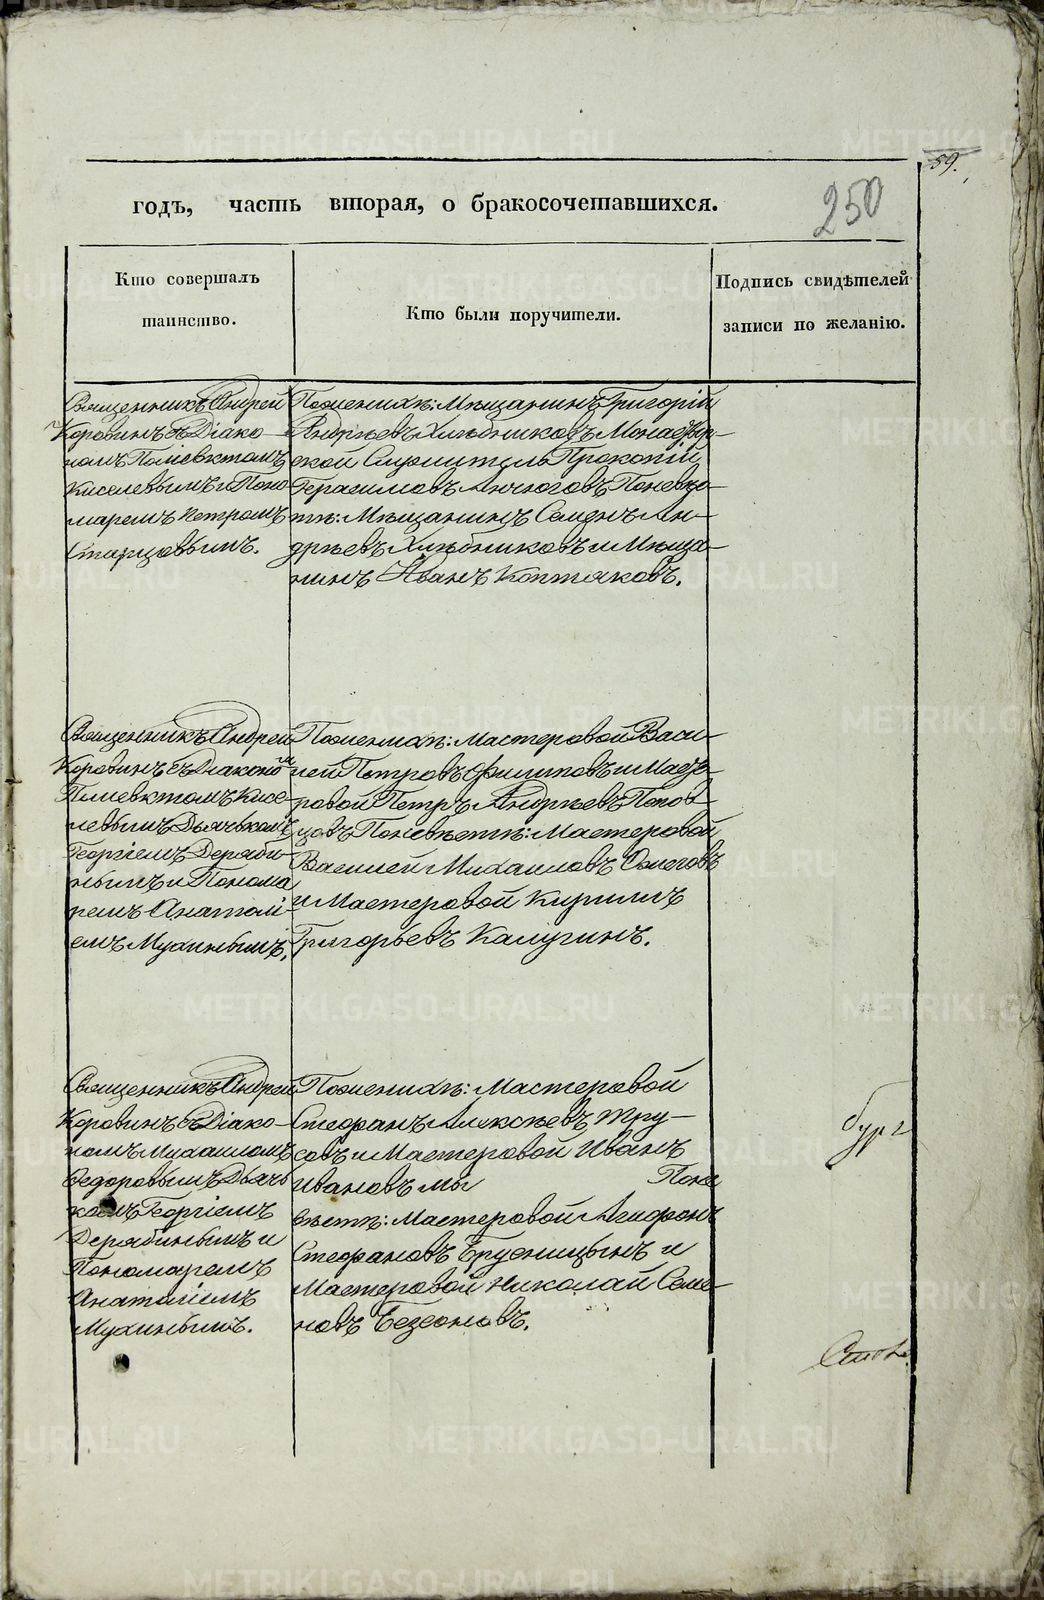 59.
годъ, часть вторая, о бракосочетавшихся.
250
Кто совершалъ
таинство.
Кто были поручители.
Подпись свидѣтелей
записи по желанію.
Священникъ Андрей
Коровинъ съ Діако-
номъ Поліевктомъ
Киселевымъ и Поно
маремъ Петромъ
Старцовымъ.
По женихѣ: Мѣщанинъ Григорій
Андрѣевъ Хлѣбниковъ Монастыр-
ской Служитель Прокопій
Герасимовъ По невѣс-
тѣ: Мѣщанинъ Семенъ Ан-
дрѣевъ Хлѣбниковъ и Мѣща-
нинъ Иванъ Коптяковъ.
Священникъ Андрей
Коровинъ съ Діакономъ
Поліевктомъ Кисе-
левымъ Дьячкомъ
Георгіемъ Деряби-
нымъ и Понома
ремъ Анатолі-
емъ Мухинымъ.
По женихѣ: Мастеровой Васи-
лей Петровъ Филиповъ и Масте-
ровой Петръ Андрѣевъ Попов-
цовъ По невѣстѣ: Мастеровой
Василей Михаиловъ
и Мастеровой Кирилъ
Григорьевъ Калугинъ.
Священникъ Андрей
Коровинъ съ Діако-
номъ Михаиломъ
Федоровымъ Дьяч
комъ Георгіемъ
Дерябинымъ и
Пономаремъ
Анатоліемъ
Мухинымъ.
По женихѣ: Мастеровой
Стефанъ Алексѣевъ Тру-
совъ и Мастеровой Иванъ
Ивановъ По не
вѣстѣ: Мастеровой Агафонъ
Стефановъ и
Мастеровой Николай Семе-
новъ Безсоновъ.
бург
METRIKI.GASO-URAL.RU